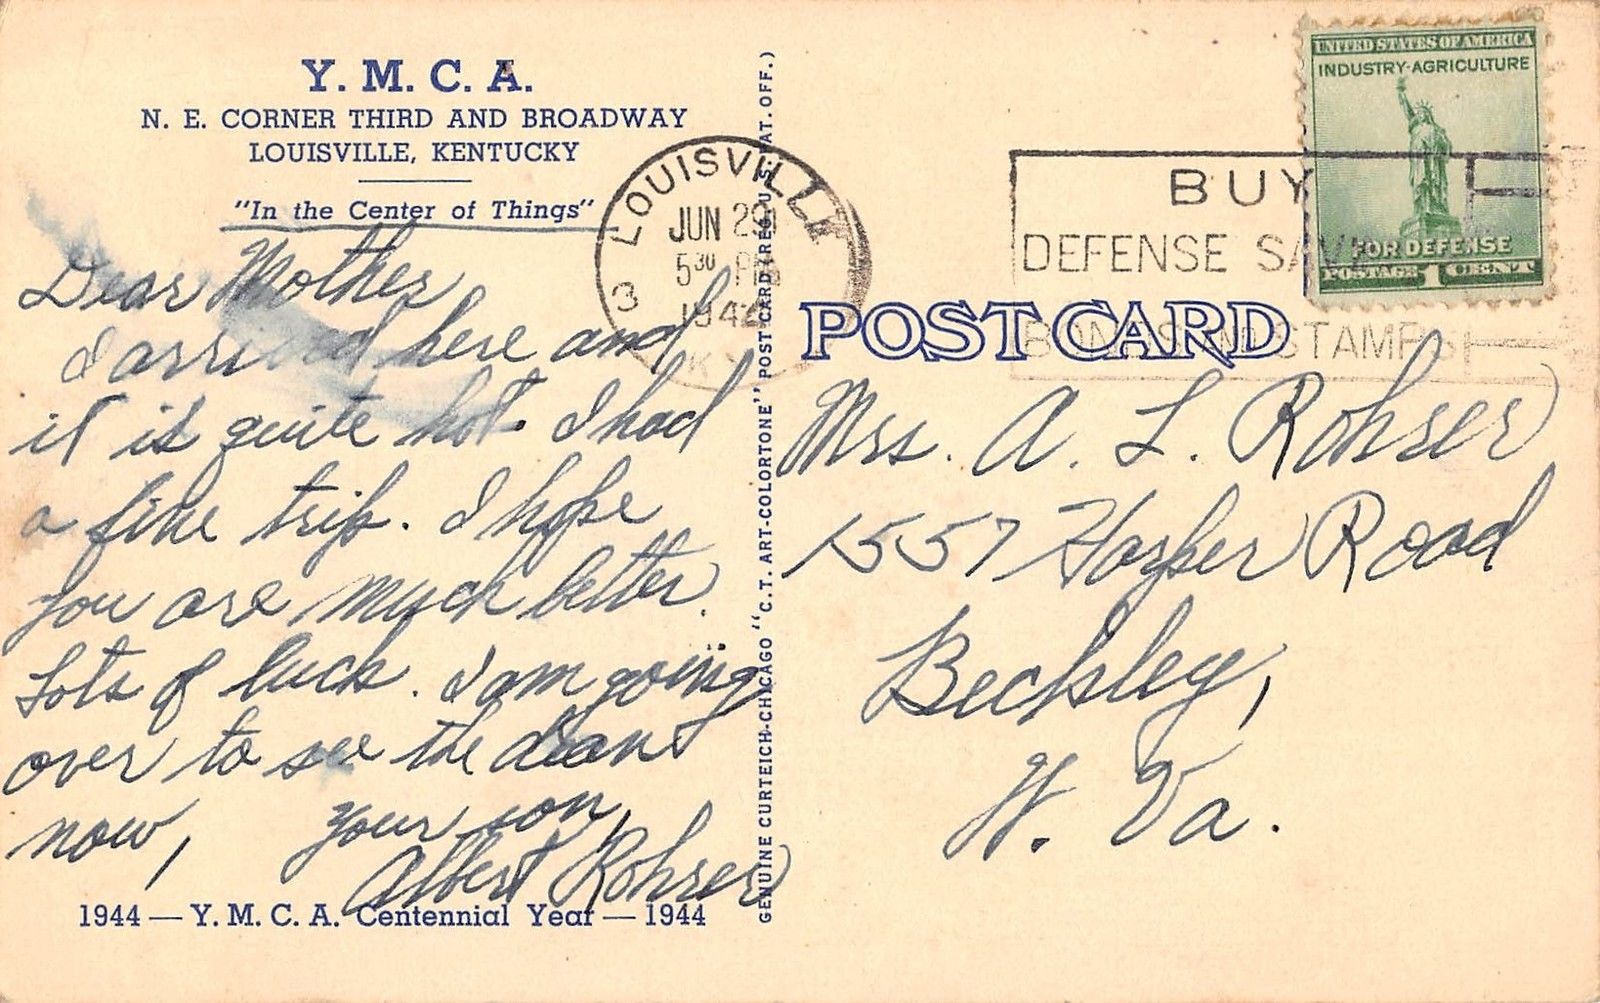 Y. M. C. A.
N. E. CORNER THIRD AND BROADWAY
LOUISVILLE, KENTUCKY
"In the Center of Things"
Dear Mother
I arrived here and
it is quite hot. I had
a fine trip. I hope
you are much better.
Lots of luck. I am going
over to see the dean
now,
your son,
Albert Rohrer
1944 — Y. M. C. A. Centennial Year — 1944
GENUINE CURTEICH-CHICAGO "C.T. ART-COLORTONE" POST CARD (REG. U.S. PAT. OFF.)
LOUISVILLE
JUN 29
5 30 PM
3
KY
BUY
DEFENSE SAV
BONDS AND STAMPS
UNITED STATES OF AMERICA
INDUSTRY-AGRICULTURE
FOR DEFENSE
POSTAGE 1 CENT
POST CARD
Mrs. A. L. Rohrer
1557 Harper Road
Beckley,
W. Va.